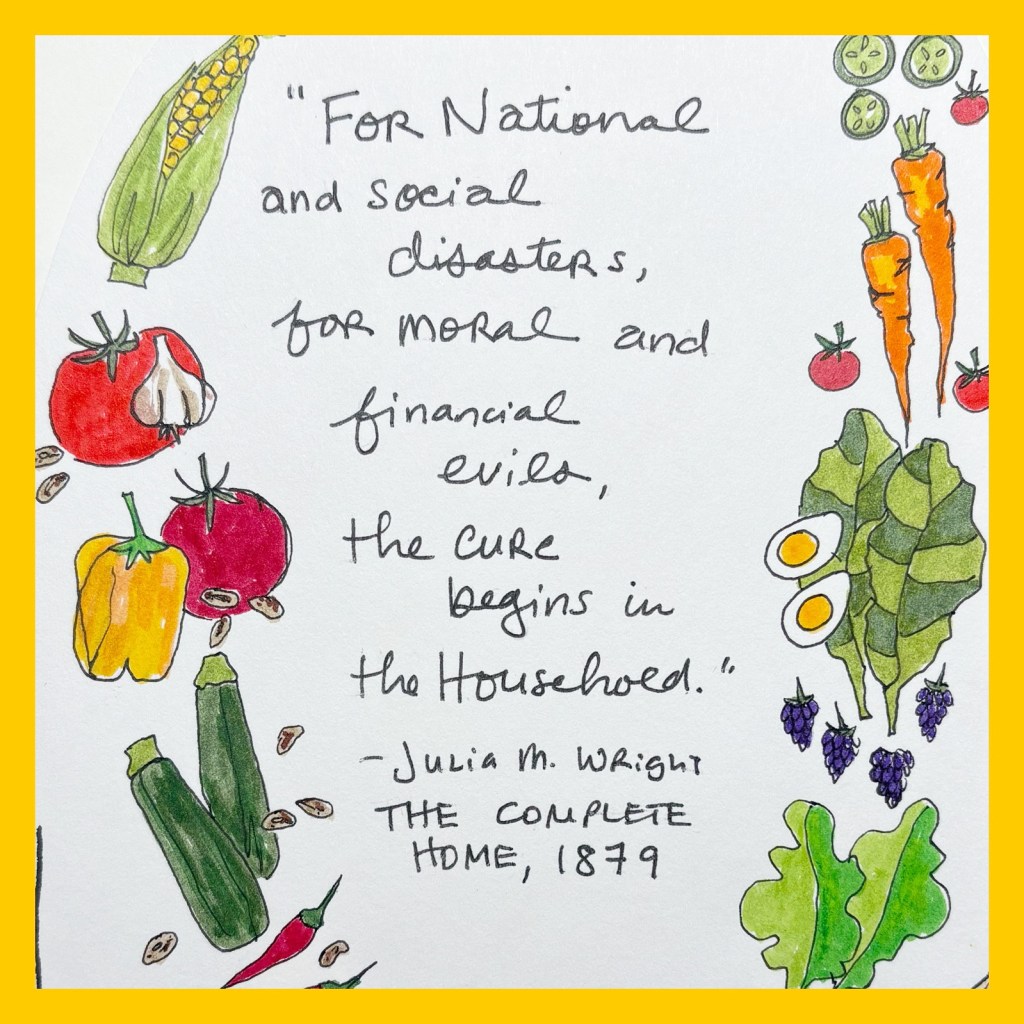 "For National
and social
disasters,
for moral and
financial
evils,
the cure
begins in
the Household."
- Julia M. Wright
THE COMPLETE
HOME, 1879